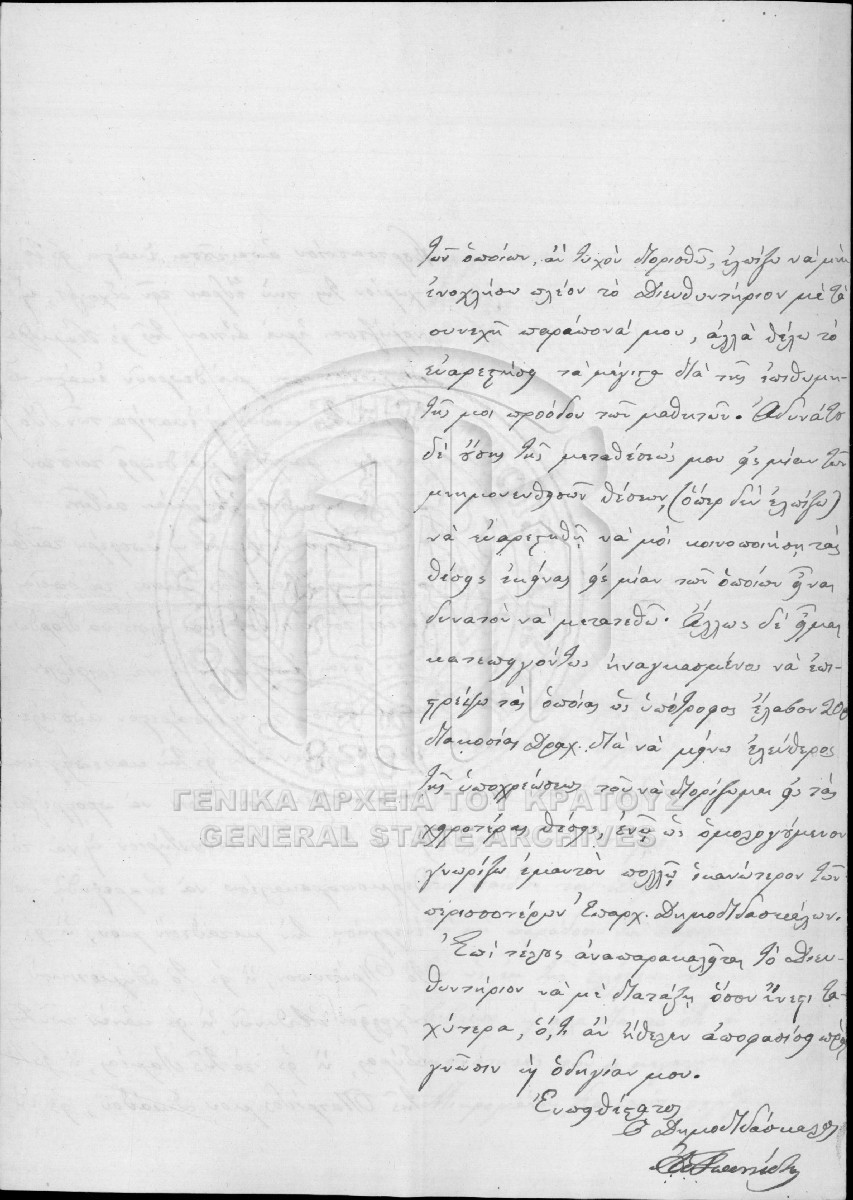 τῶν ὁποίων, ἂν τυχὸν διορισθῶ, ἐλπίζω νὰ μὴν
ἐνοχλήσω πλέον τὸ Διευθυντήριον μὲ τὰ
συνεχῆ παράπονά μου, ἀλλὰ θέλω τὸ
εὐαρεστήσει τὰ μέγιστα διὰ τῆς ἐπιθυμη-
τῆς μοι προόδου τῶν μαθητῶν. Ἀδυνάτου
δὲ οὔσης τῆς μεταθέσεώς μου εἰς μίαν τῶν
μνημονευθεισῶν θέσεων, (ὅπερ δὲν ἐλπίζω)
νὰ εὐαρεστηθῇ νὰ μοὶ κοινοποιήσῃ τὰς
θέσεις ἐκείνας εἰς μίαν τῶν ὁποίων εἶναι
δυνατὸν νὰ μετατεθῶ. Ἄλλως δὲ εἶμαι
κατεπειγόντως ἠναγκασμένος νὰ ἐπι-
στρέψω τὰς ὁποίας ὡς ὑπότροφος ἔλαβον 200
διακοσίας Δραχ. διὰ νὰ μείνω ἐλεύθερος
τῆς ὑποχρεώσεως τοῦ νὰ διορίζωμαι εἰς τὰς
χειροτέρας θέσεις, ἐνῷ ὡς ὁμολογούμενον
γνωρίζω ἐμαυτὸν πολλῷ ἱκανώτερον τῶν
περισσοτέρων Ἐπαρχ. Δημοδιδασκάλων.
Ἐπὶ τέλους ἀναπαρακαλεῖται τὸ Διευ-
θυντήριον νὰ μὲ διατάξῃ ὅσον ἔνεστι τα-
χύτερα, ὅ,τι ἂν ἤθελεν ἀποφασίσει πρὸς
γνῶσιν καὶ ὁδηγίαν μου.
Εὐπειθέστατος
Ὁ Δημοδιδάσκαλος
ΓΕΝΙΚΑ ΑΡΧΕΙΑ ΤΟΥ ΚΡΑΤΟΥΣ
GENERAL STATE ARCHIVES